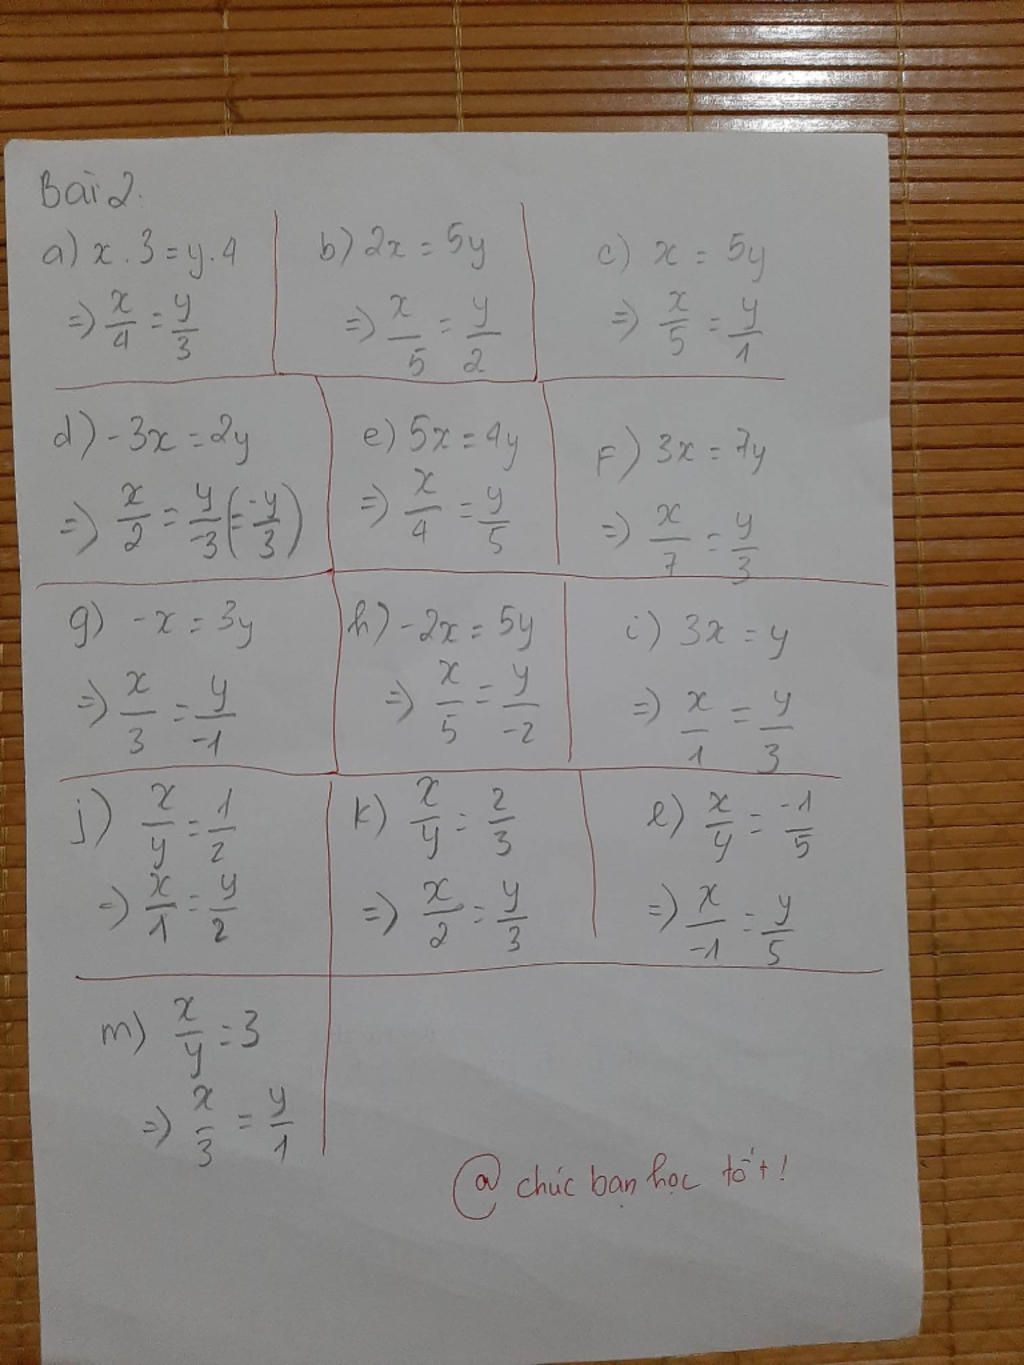 Bài 2.
a) x . 3 = y . 4
=> x/4 = y/3
b) 2x = 5y
=> x/5 = y/2
c) x = 5y
=> x/5 = y/1
d) -3x = 2y
=> x/2 = y/-3 (= -y/3)
e) 5x = 4y
=> x/4 = y/5
F) 3x = 7y
=> x/7 = y/3
g) -x = 3y
=> x/3 = y/-1
h) -2x = 5y
=> x/5 = y/-2
i) 3x = y
=> x/1 = y/3
j) x/y = 1/2
=> x/1 = y/2
k) x/y = 2/3
=> x/2 = y/3
l) x/y = -1/5
=> x/-1 = y/5
m) x/y = 3
=> x/3 = y/1
@ chúc bạn học tốt!